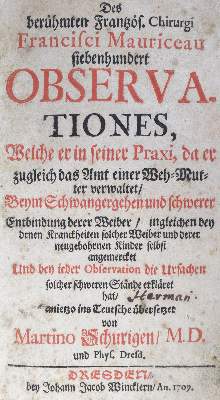 Des
berühmten Frantzös. Chirurgi
Francisci Mauriceau
siebenhundert
OBSERVA-
TIONES,
Welche er in seiner Praxi, da er
zugleich das Amt einer Weh-Mut-
ter verwaltet/
Beym Schwangergehen und schwerer
Entbindung derer Weiber/ ingleichen bey
denen Kranckheiten solcher Weiber und derer
neugebohrnen Kinder selbst
angemercket
Und bey ieder Observation die Ursachen
solcher schweren Stände erkläret
hat/ Herman
anietzo ins Teutsche übersetzet
von
Martino Schurigen/ M.D.
und Phys. Dresd.
DRESDEN/
bey Johann Jacob Wincklern/ An. 1709.